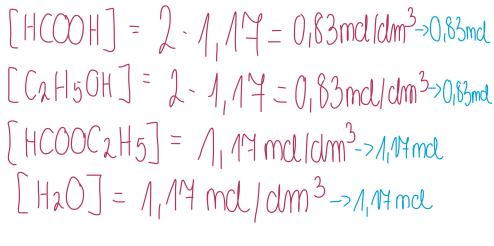 [HCOOH] = 2 · 1,17 = 0,83 mol/dm³ → 0,83 mol
[C₂H₅OH] = 2 - 1,17 = 0,83 mol/dm³ → 0,83 mol
[HCOOC₂H₅] = 1,17 mol/dm³ → 1,17 mol
[H₂O] = 1,17 mol/dm³ → 1,17 mol